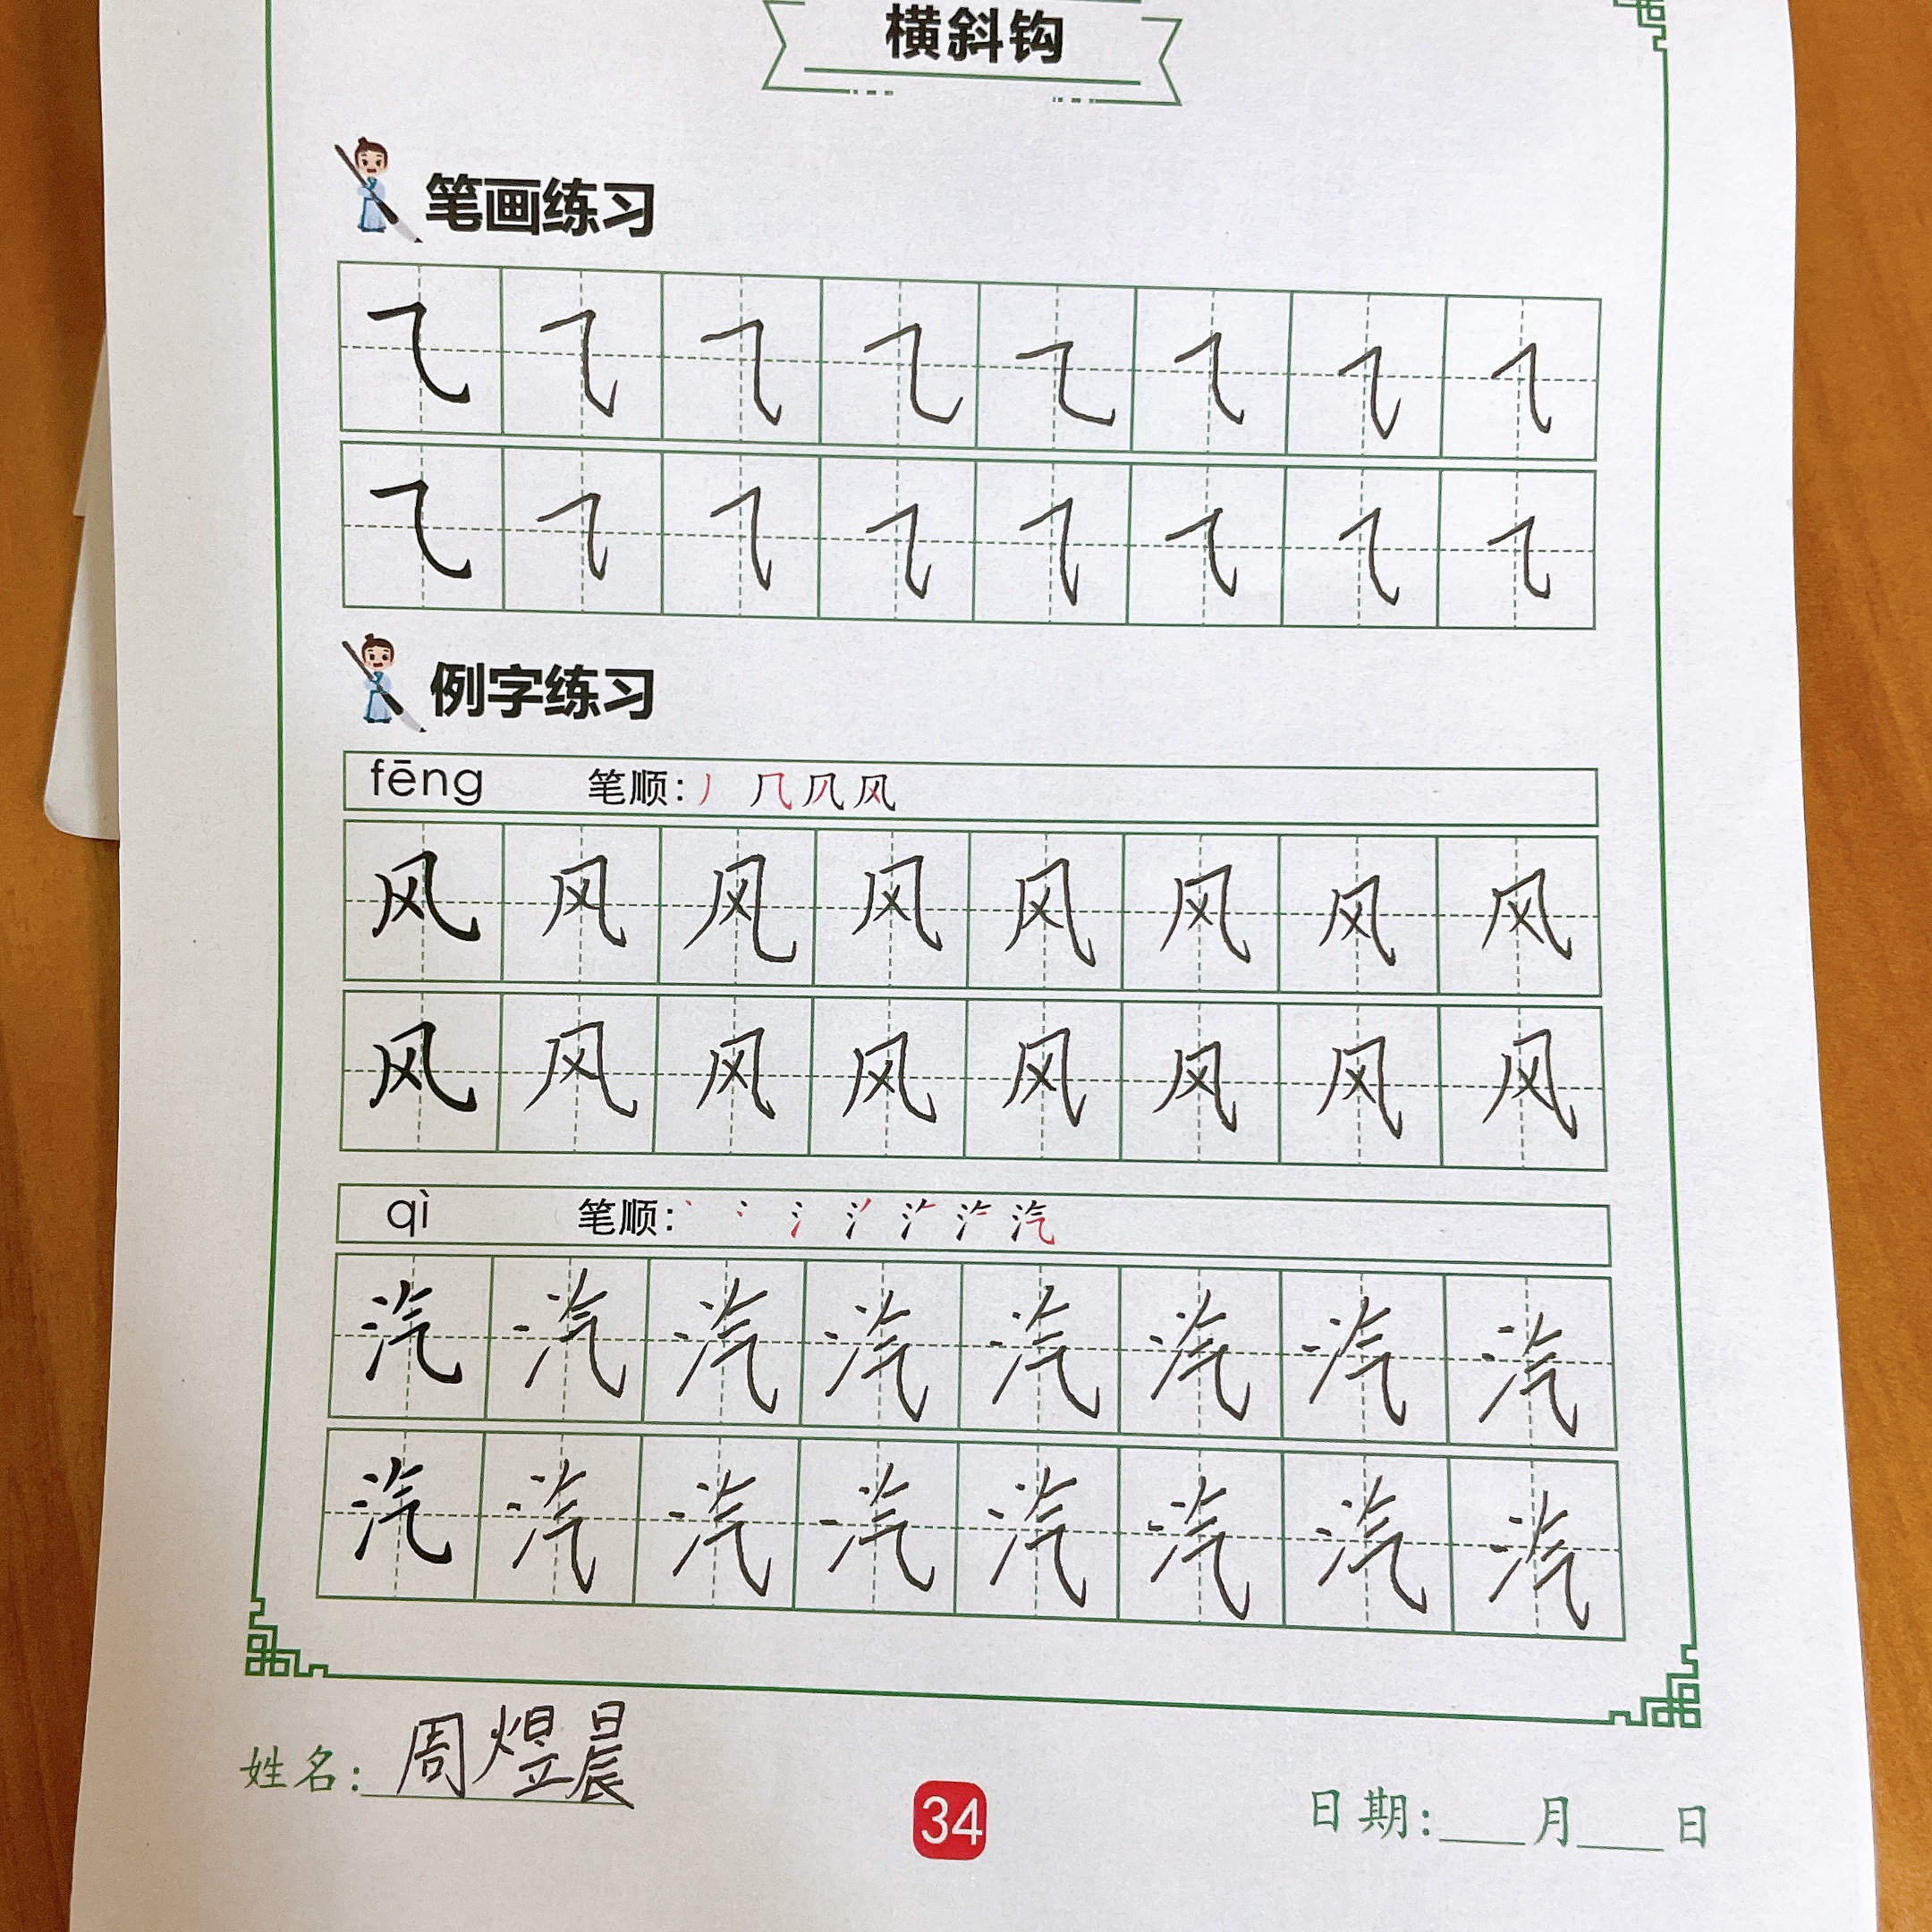 横斜钩
笔画练习
⺄ ⺄ ⺄ ⺄ ⺄ ⺄ ⺄ ⺄
⺄ ⺄ ⺄ ⺄ ⺄ ⺄ ⺄ ⺄
例字练习
fēng 笔顺: 丿 几 风
风 风 风 风 风 风 风 风
风 风 风 风 风 风 风 风
qì 笔顺: 丶 冫 氵 汽
汽 汽 汽 汽 汽 汽 汽 汽
汽 汽 汽 汽 汽 汽 汽 汽
姓名: 周煜晨
34
日期: ___月___日